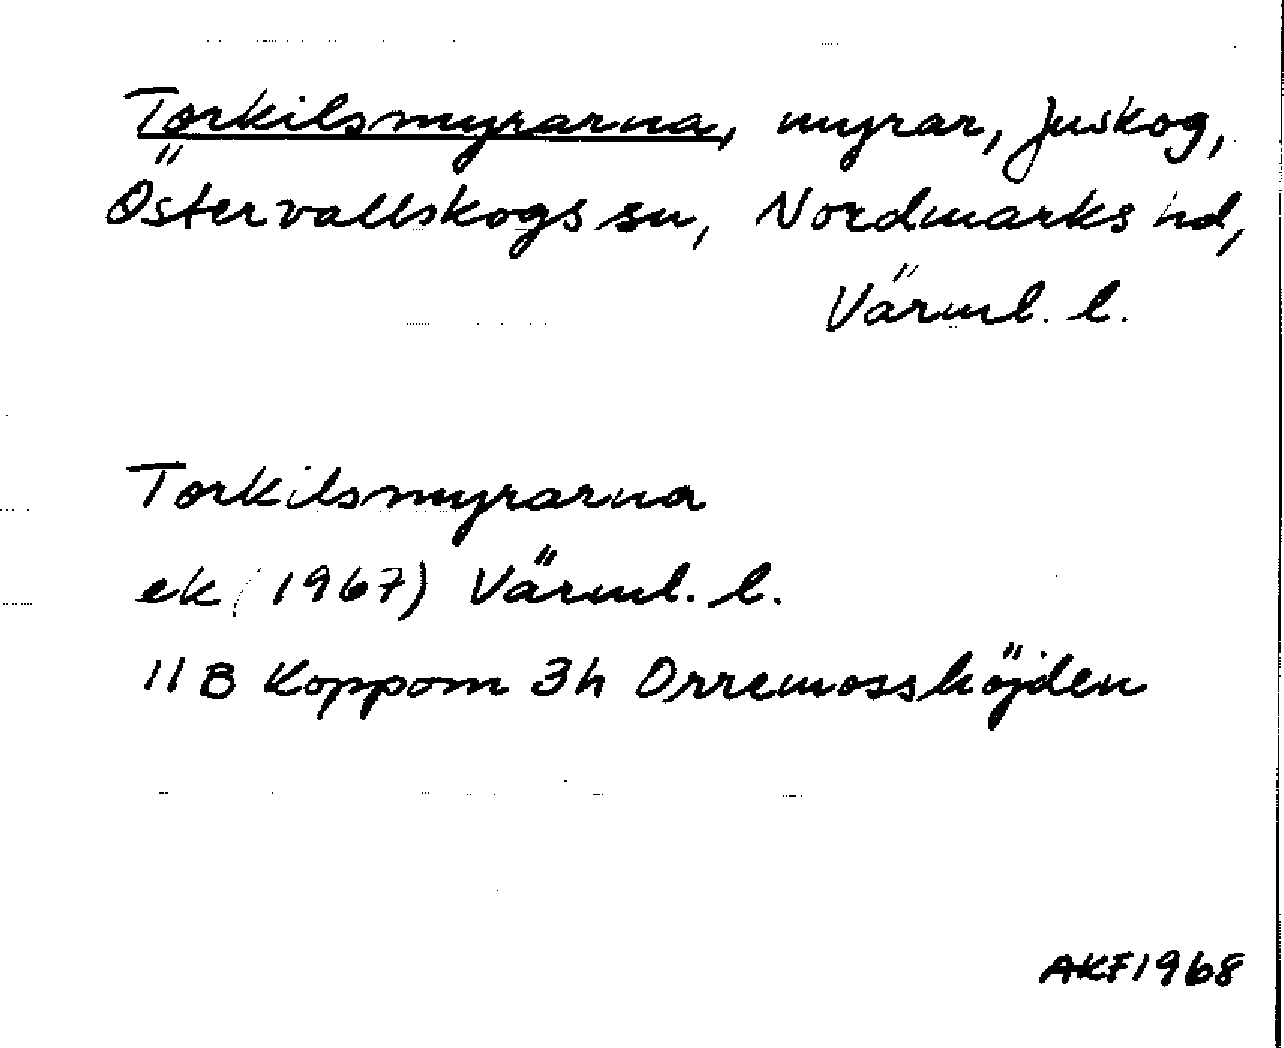 Torkilsmyrarna, myrar, Juskog,
Östervallskogs sn, Nordmarks hd,
Värml. l.
Torkilsmyrarna
ek (1967) Värml. l.
11 B Koppom 3h Orremosshöjden
AKF1968